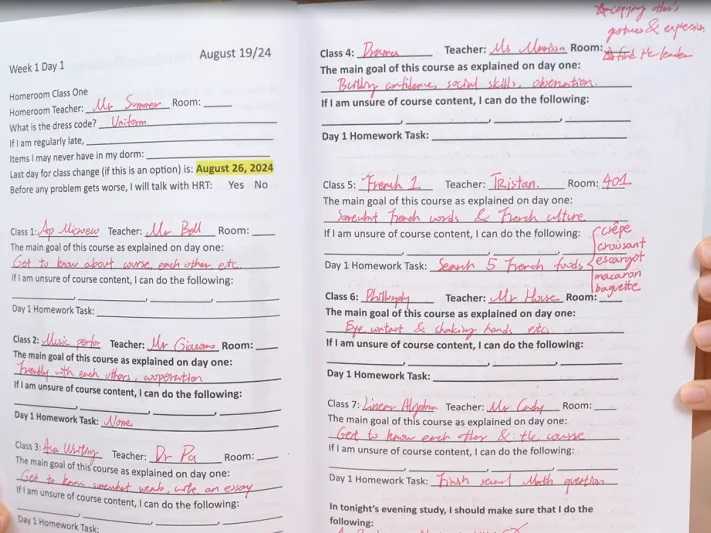 August 19/24
Week 1 Day 1
Homeroom Class One
Homeroom Teacher: Mr Summer Room:
What is the dress code? Uniform
If I am regularly late,
Items I may never have in my dorm:
Last day for class change (if this is an option) is: August 26, 2024
Before any problem gets worse, I will talk with HRT: Yes No
Class 1: Ap Microeco Teacher: Mr Bell Room:
The main goal of this course as explained on day one:
Get to know about course, each other etc.
If I am unsure of course content, I can do the following:
Day 1 Homework Task:
Class 2: Music Teacher: Mr Room:
The main goal of this course as explained on day one:
with each others, cooperation
If I am unsure of course content, I can do the following:
Day 1 Homework Task: None
Class 3: Writing Teacher: Dr Pa Room:
The main goal of this course as explained on day one:
Get to know somewhat, write an essay
If I am unsure of course content, I can do the following:
Day 1 Homework Task:
☆copying other's
gestures & expression
☆find the leader
Class 4: Drama Teacher: Ms Room:
The main goal of this course as explained on day one:
Building confidence, social skills, observation.
If I am unsure of course content, I can do the following:
Day 1 Homework Task:
Class 5: French 1 Teacher: Tristan. Room: 401
The main goal of this course as explained on day one:
Somewhat French words & French culture
If I am unsure of course content, I can do the following:
Day 1 Homework Task: Search 5 French foods
crêpe
croissant
escargot
macaron
baguette
Class 6: Philosophy Teacher: Mr House Room:
The main goal of this course as explained on day one:
Eye contact & shaking hands etc.
If I am unsure of course content, I can do the following:
Day 1 Homework Task:
Class 7: Linear Algebra Teacher: Mr Cody Room:
The main goal of this course as explained on day one:
Get to know each other & the course
If I am unsure of course content, I can do the following:
Day 1 Homework Task: Finish several Math question
In tonight's evening study, I should make sure that I do the
following: